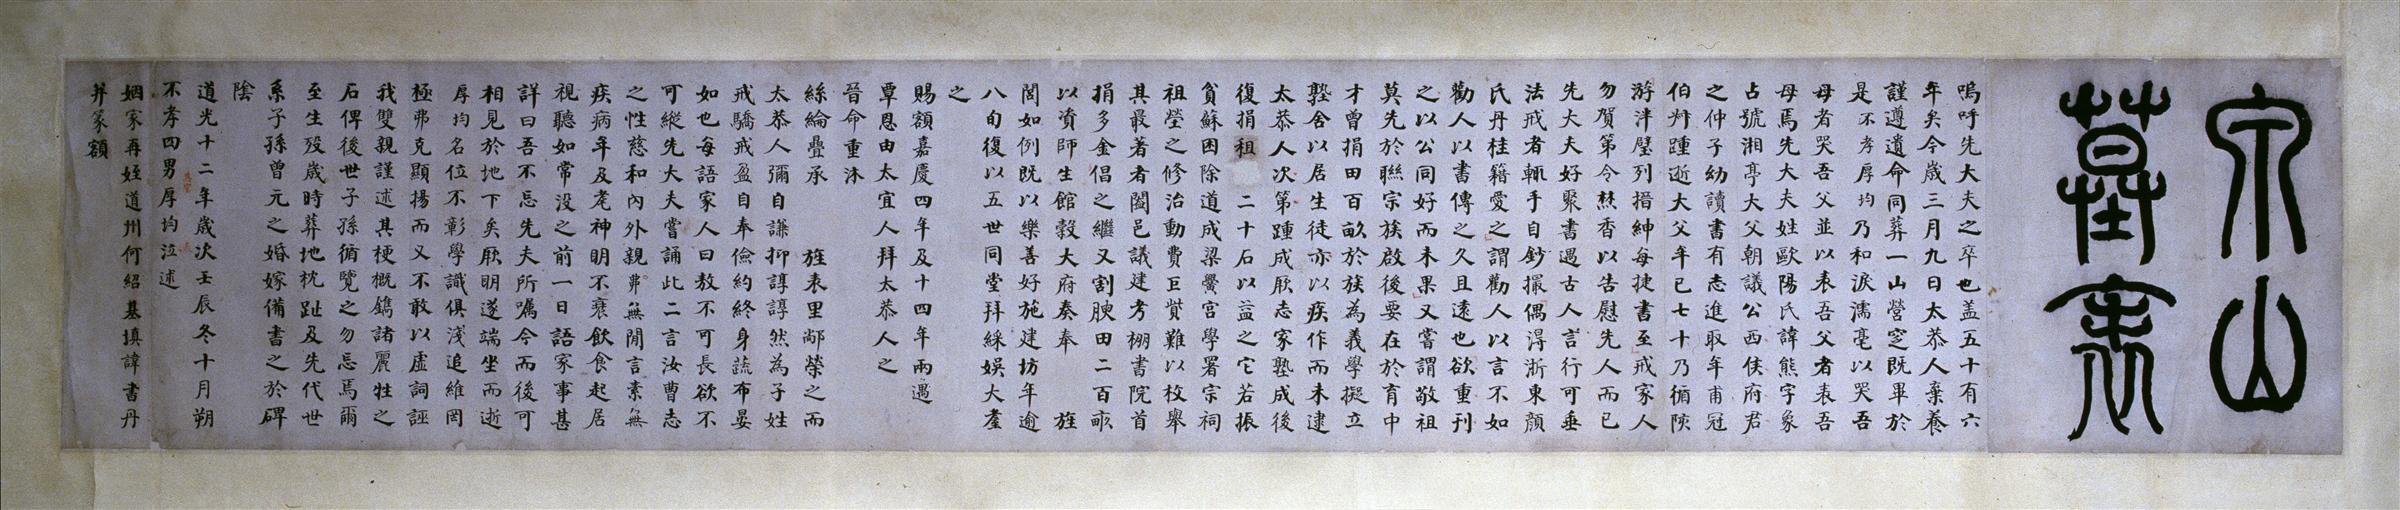 宗山
墓表
嗚呼先大夫之卒也蓋五十有六
年矣今歲三月九日太恭人棄養
謹遵遺命同葬一山營窆既畢於
是不孝厚均乃和淚濡毫以哭吾
母者哭吾父並以表吾父者表吾
母馬先大夫姓歐陽氏諱熊字象
占號湘亭大父朝議公西侯府君
之仲子幼讀書有志進取年甫冠
伯對踵逝大父年已七十乃循陔
游泮璧列搢紳每捷書至戒家人
勿賀第令焚香以告慰先人而已
先大夫好聚書遇古人言行可垂
法戒者輒手自鈔撮偶淂浙東顏
氏丹桂籍愛之謂勸人以言不如
勸人以書傳之久且遠也欲重刊
之以公同好而未果又嘗謂敬祖
莫先於聯宗族啟後要在於育中
才曾捐田百畝於族為義學擬立
塾舍以居生徒亦以疾作而未逮
太恭人次第踵成厥志家塾成後
復捐租二十石以益之它若振
貧蘇困除道成梁黌宮學署宗祠
祖塋之修治動費巨貲難以枚舉
其最著者闔邑議建考棚書院首
捐多金倡之繼又割腴田二百畝
以資師生館穀大府奏奉 旌
閭如例既以樂善好施建坊年逾
八旬復以五世同堂拜綵娛大耋
之
賜額嘉慶四年及十四年兩遇
覃恩由太宜人拜太恭人之
晉命重沐
絲綸疊承 旌表里鄰榮之而
太恭人彌自謙抑諄諄然為子姓
戒驕戒盈自奉儉約終身蔬布晏
如也每語家人曰敖不可長欲不
可縱先大夫嘗誦此二言汝曹志
之性慈和內外親弗無閒言素無
疾病年及耄神明不衰飲食起居
視聽如常沒之前一日語家事甚
詳曰吾不忘先夫所囑今而後可
相見於地下矣厥明遂端坐而逝
厚均名位不彰學識俱淺追維罔
極弗克顯揚而又不敢以虛詞誣
我雙親謹述其梗概鐫諸麗牲之
石俾後世子孫循覽之勿忘馬爾
至生歿歲時葬地枕趾及先代世
系子孫曾元之婚嫁備書之於碑
陰
道光十二年歲次壬辰冬十月朔
不孝四男厚均泣述
姻家再姪道州何紹基填諱書丹
并篆額